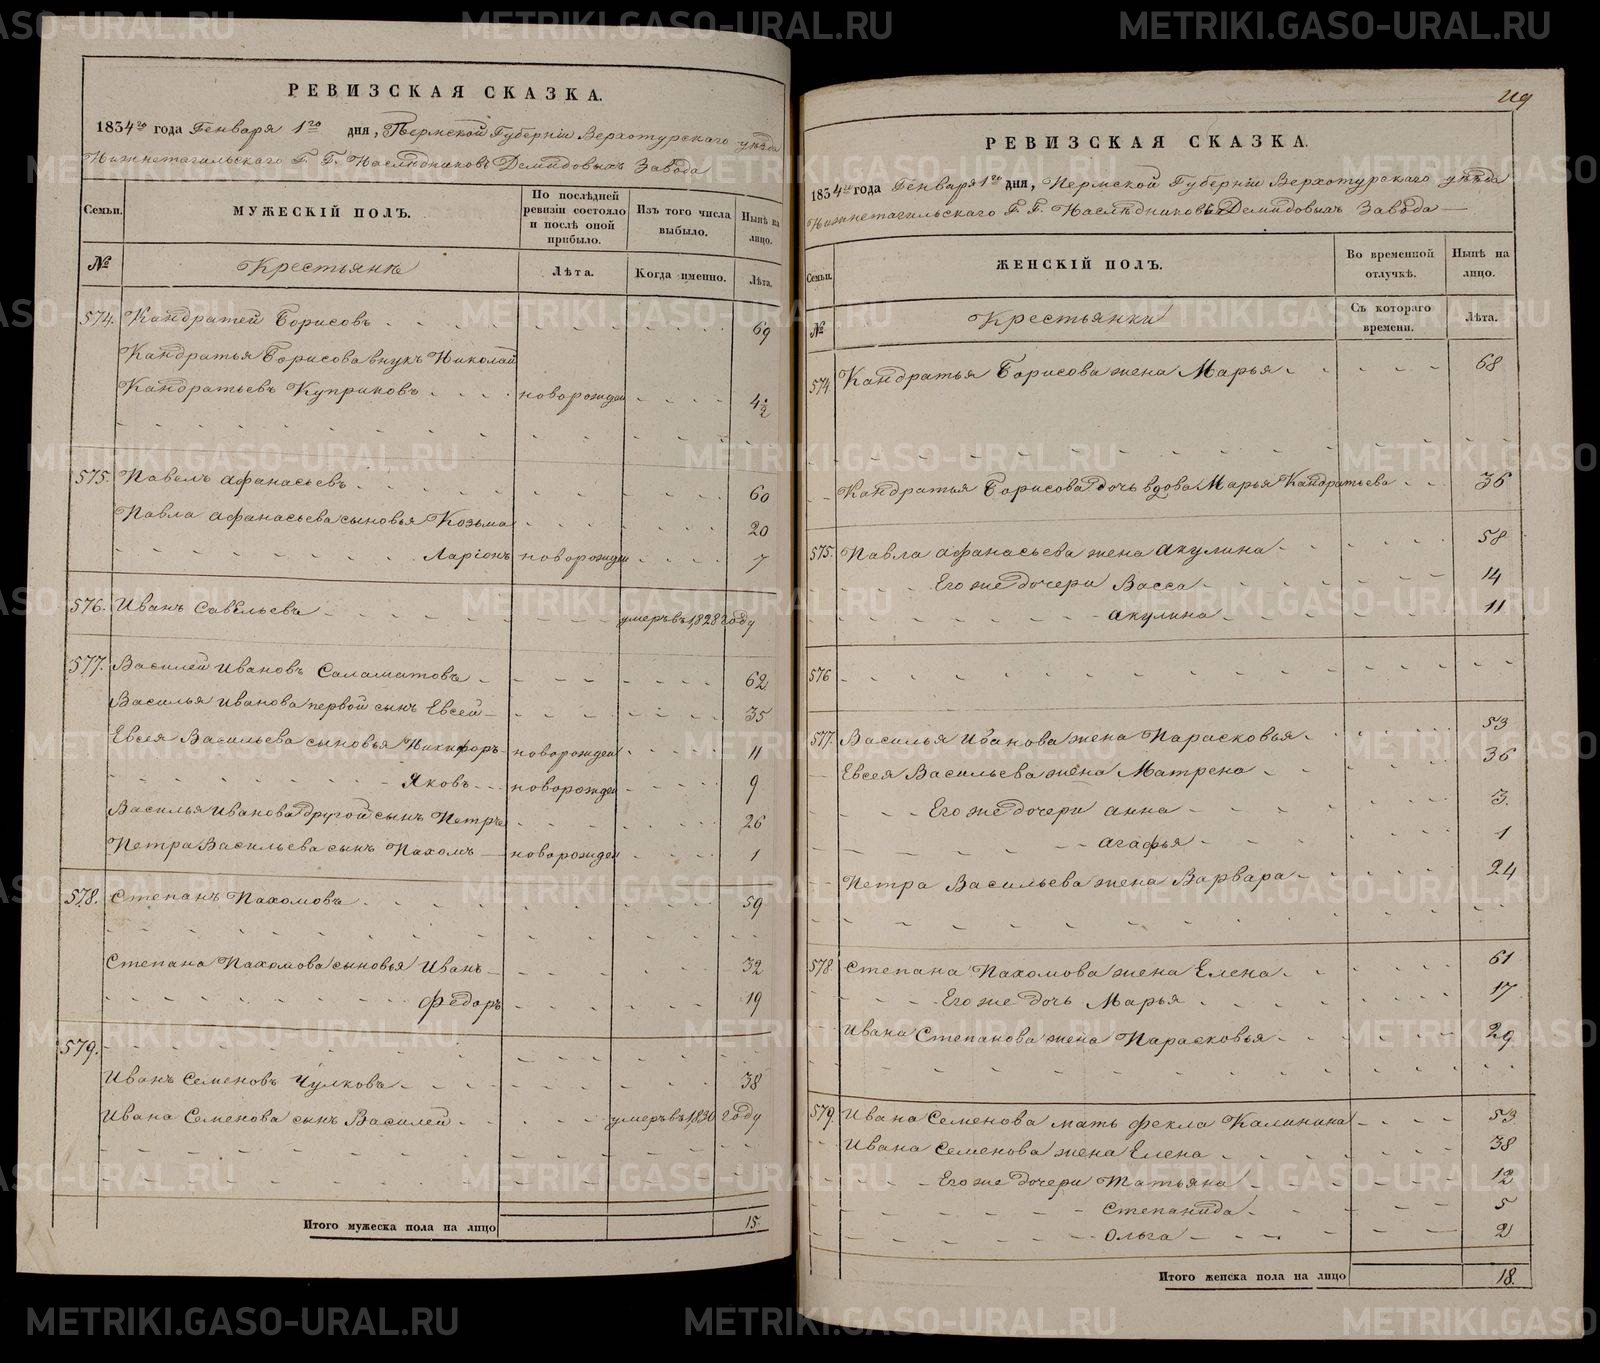 РЕВИЗСКАЯ СКАЗКА.
1834го года Генваря 1го дня, Пермской Губерніи Верхотурскаго уѣзда
Нижнетагильскаго Г. Г. Наслѣдниковъ Демидовыхъ Завода
Семьи.
МУЖЕСКІЙ ПОЛЪ.
По послѣдней ревизіи состояло и послѣ оной прибыло.
Изъ того числа выбыло.
Нынѣ на лицо.
№
Крестьяне
Лѣта.
Когда именно.
Лѣта.
574. Кандратей Борисовъ 69
Кандратья Борисова внукъ Николай
Кандратьевъ Куприковъ новорожден 4½
575. Павелъ Афанасьевъ 60
Павла Афанасьева сыновья Козьма 20
Ларіонъ новорожден 7
576. Иванъ Савельевъ умеръ въ 1828 году
577. Василей Ивановъ Саламатовъ 62
Василья Иванова первой сынъ Евсей 35
Евсея Васильева сыновья Никифоръ новорожден 11
Яковъ новорожден 9
Василья Иванова другой сынъ Петръ 26
Петра Васильева сынъ Пахомъ новорожден 1
578. Степанъ Пахомовъ 59
Степана Пахомова сыновья Иванъ 32
Федоръ 19
579.
Иванъ Семеновъ Чулковъ 38
Ивана Семенова сынъ Василей умеръ въ 1830 году
Итого мужеска пола на лицо 15.
119
РЕВИЗСКАЯ СКАЗКА.
1834го года Генваря 1го дня, Пермской Губерніи Верхотурскаго уѣзда
Нижнетагильскаго Г. Г. Наслѣдниковъ Демидовыхъ Завода
Семьи.
ЖЕНСКІЙ ПОЛЪ.
Во временной отлучкѣ.
Нынѣ на лицо.
№
Крестьянки
Съ котораго времени.
Лѣта.
574 Кандратья Борисова жена Марья 68
Кандратья Борисова дочь вдова Марья Кандратьева 36
575. Павла Афанасьева жена Акулина 58
Его же дочери Васса 14
Акулина 11
576
577. Василья Иванова жена Парасковья 53
Евсея Васильева жена Матрена 36
Его же дочери Анна 3.
Агафья 1
Петра Васильева жена Варвара 24
578 Степана Пахомова жена Елена 61
Его же дочь Марья 17
Ивана Степанова жена Парасковья 29
579. Ивана Семенова мать Фекла Калинина 53
Ивана Семенова жена Елена 38
Его же дочери Татьяна 12
Степанида 5
Ольга 2
Итого женска пола на лицо 18.
METRIKI.GASO-URAL.RU